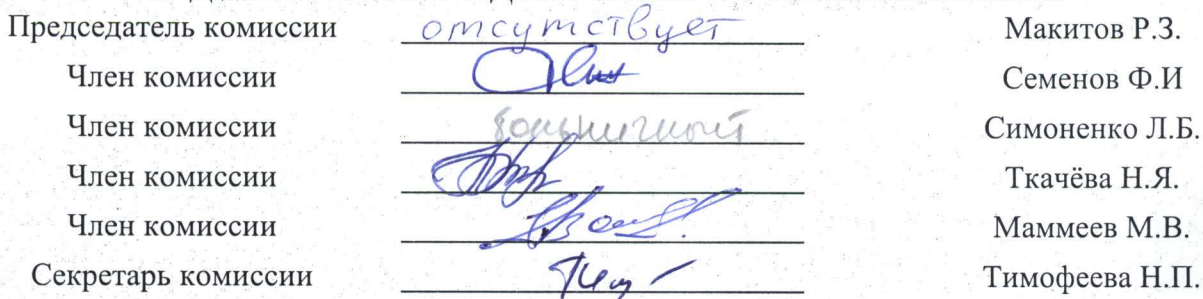 Председатель комиссии отсутствует Макитов Р.З.
Член комиссии Семенов Ф.И
Член комиссии больничный Симоненко Л.Б.
Член комиссии Ткачёва Н.Я.
Член комиссии Маммеев М.В.
Секретарь комиссии Тимофеева Н.П.